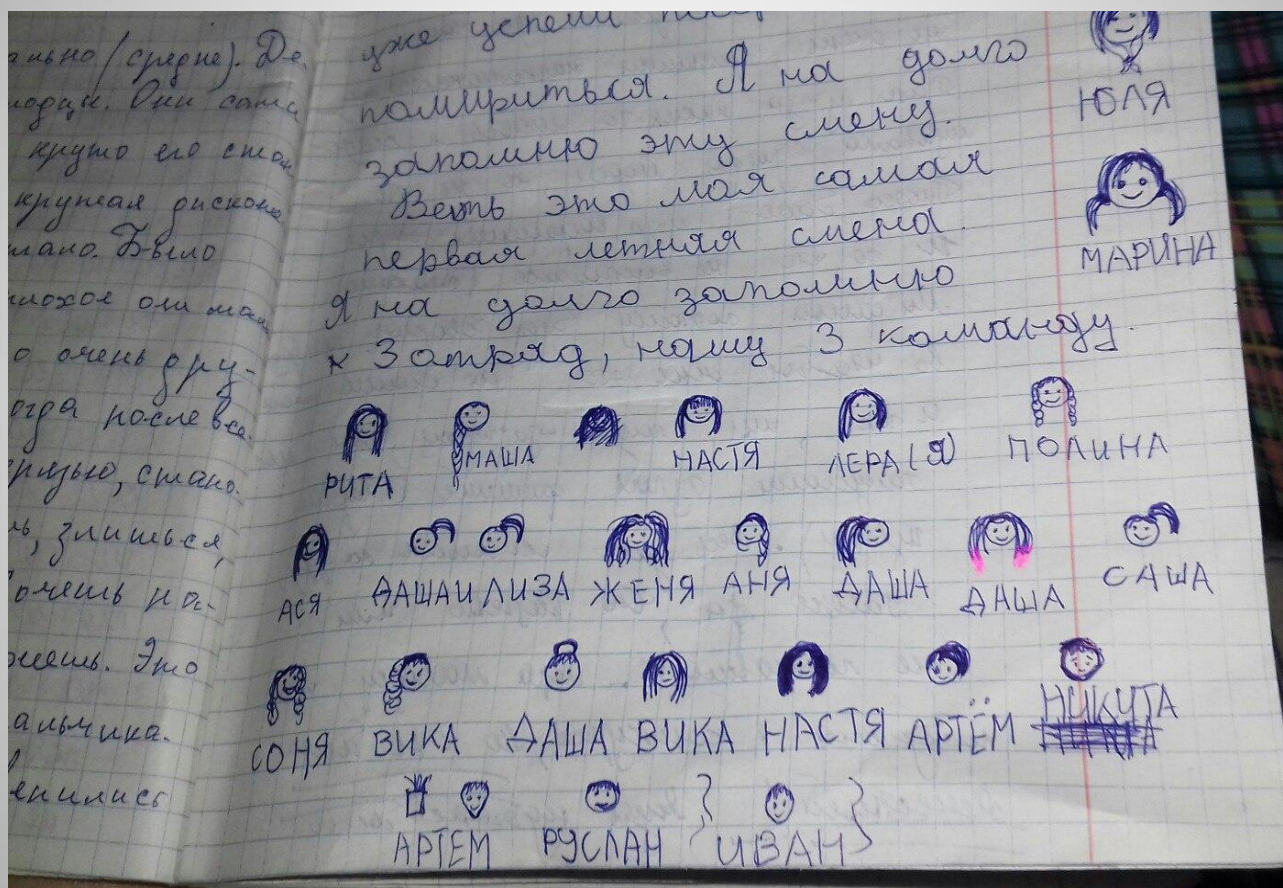 ально (средне). Де
Они сами
круто его
крутая
мало. Было
плохое или
о очень дру-
огда после все-
злишься,
Это
альчика.
енились
уже успели
помириться. Я на долго
запомню эту смену.
Веть это моя самая
первая летняя смена.
Я на долго запомню
3 отряд, нашу 3 команду.
ЮЛЯ
МАРИНА
РИТА МАША НАСТЯ ЛЕРА (Я) ПОЛИНА
АСЯ ДАША И ЛИЗА ЖЕНЯ АНЯ ДАША ДАША САША
СОНЯ ВИКА ДАША ВИКА НАСТЯ АРТЁМ НИКИТА
АРТЕМ РУСЛАН { ИВАН }